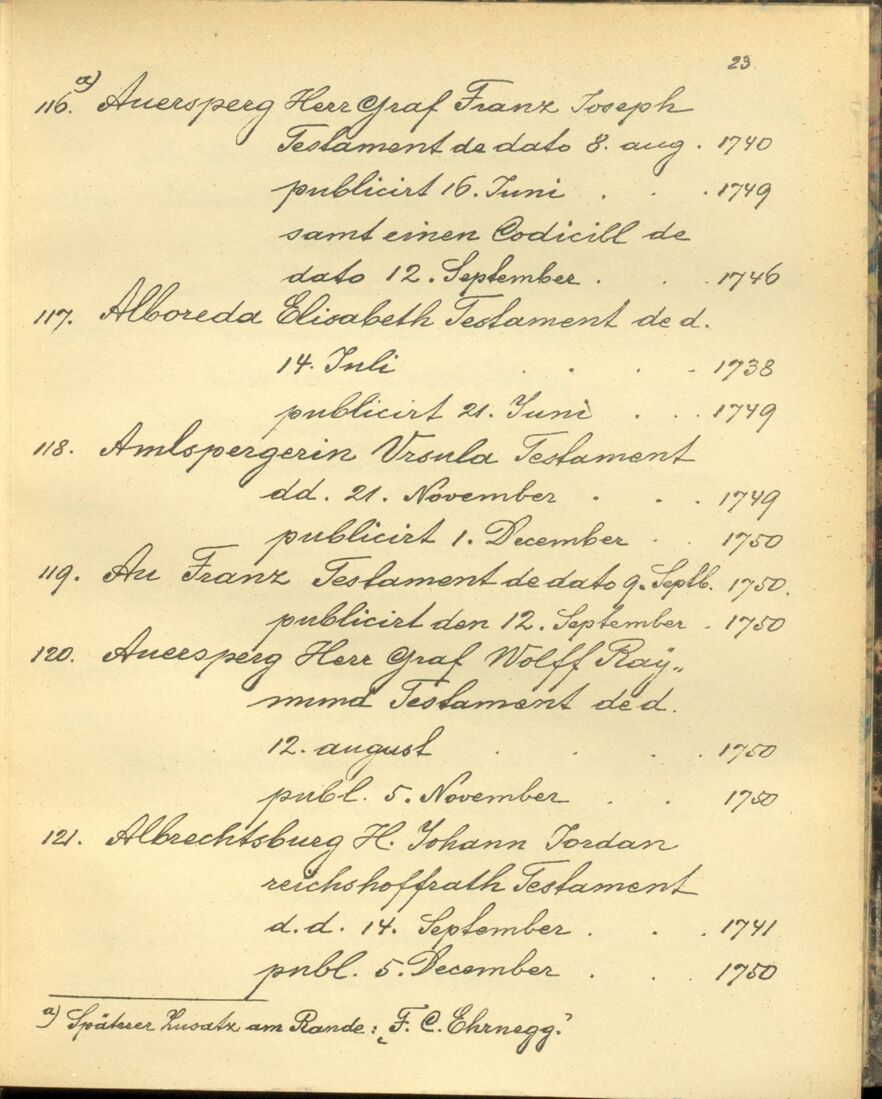 23
116. a) Auersperg Herr Graf Franz Joseph
Testament de dato 8. aug. 1740
publicirt 16. Juni . . . 1749
samt einen Codicill de
dato 12. September . . . 1746
117. Alboreda Elisabeth Testament de d.
14. Juli . . . . 1738
publicirt 21. Juni . . . 1749
118. Amlspergerin Ursula Testament
dd. 21. November . . . 1749
publicirt 1. December . . 1750
119. Au Franz Testament de dato 9. Septb. 1750.
publicirt den 12. September . 1750
120. Auersperg Herr Graf Wolff Raÿ„
mund Testament de d.
12. august . . . . 1750
publ. 5. November . . 1750
121. Albrechtsburg H. Johann Jordan
reichshoffrath Testament
d. d. 14. September . . . 1741
publ. 5. December . . . 1750
a) Späterer Zusatz am Rande: „F. C. Ehrnegg.“